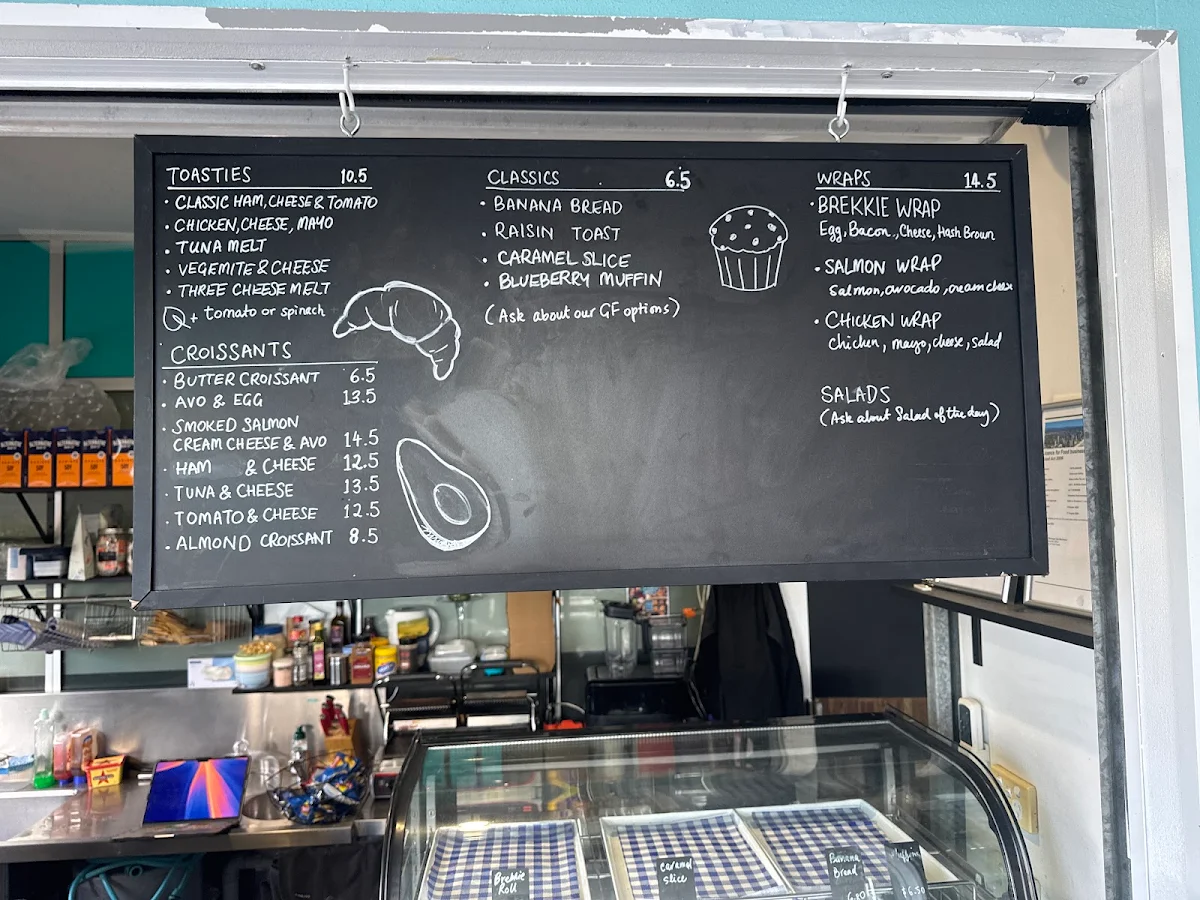 TOASTIES 10.5
• CLASSIC HAM, CHEESE & TOMATO
• CHICKEN, CHEESE, MAYO
• TUNA MELT
• VEGEMITE & CHEESE
• THREE CHEESE MELT
+ tomato or spinach
CROISSANTS
• BUTTER CROISSANT 6.5
• AVO & EGG 13.5
• SMOKED SALMON
CREAM CHEESE & AVO 14.5
• HAM & CHEESE 12.5
• TUNA & CHEESE 13.5
• TOMATO & CHEESE 12.5
• ALMOND CROISSANT 8.5
CLASSICS 6.5
• BANANA BREAD
• RAISIN TOAST
• CARAMEL SLICE
• BLUEBERRY MUFFIN
(Ask about our GF options)
WRAPS 14.5
• BREKKIE WRAP
Egg, Bacon, Cheese, Hash Brown
• SALMON WRAP
Salmon, avocado, cream cheese
• CHICKEN WRAP
Chicken, mayo, cheese, salad
SALADS
(Ask about Salad of the day)
Brekkie
Roll
caramel
slice
Banana
Bread
Muffins
$6.50